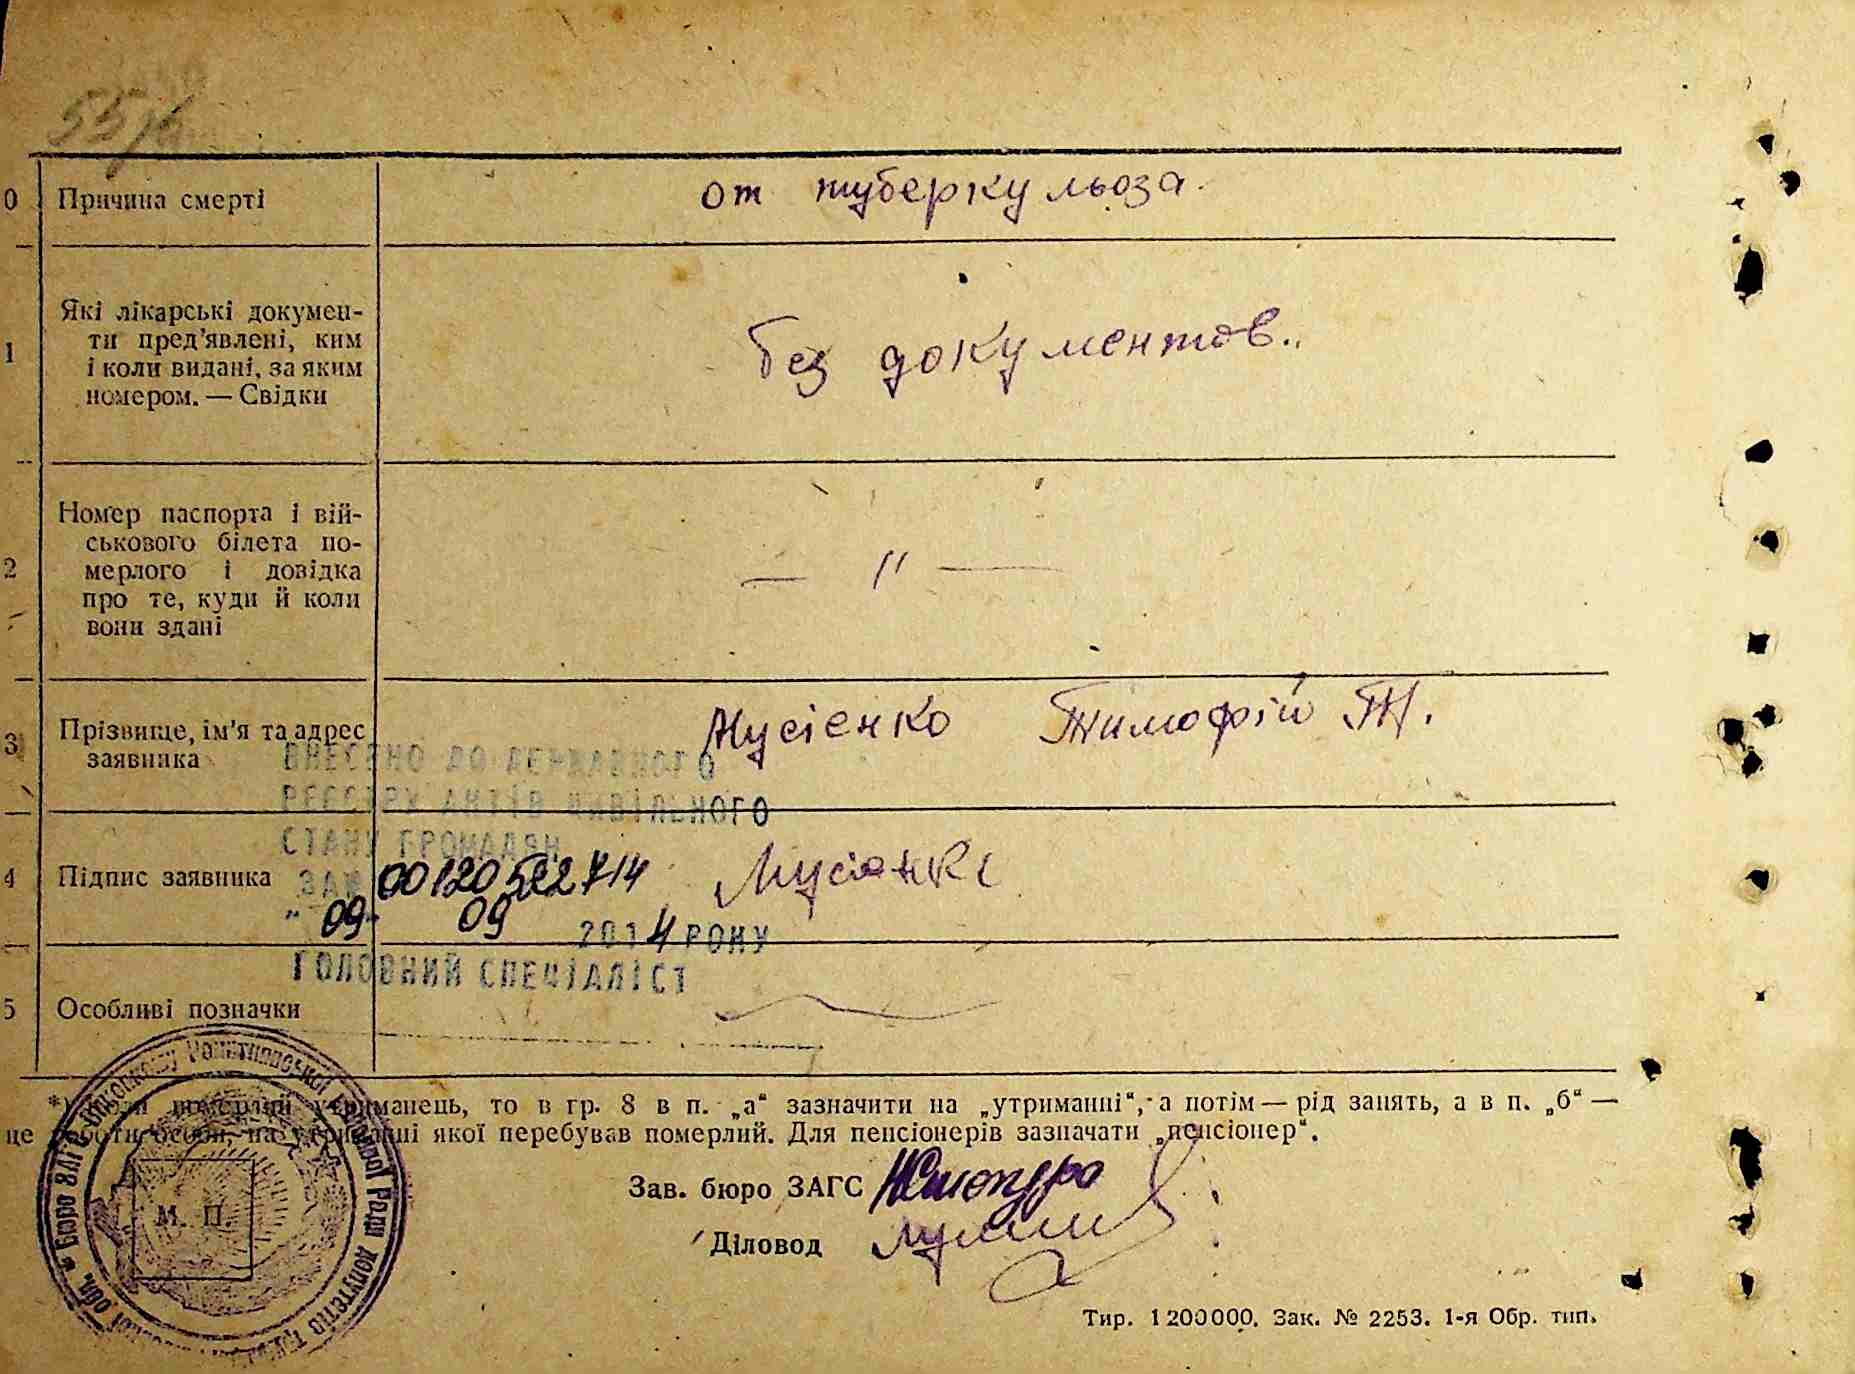 55/6
0 Причина смерті от туберкульоза.
Які лікарські докумен-
ти пред’явлені, ким
1 і коли видані, за яким без документов..
номером. — Свідки
Номер паспорта і вій-
ськового білета по-
2 мерлого і довідка — " —
про те, куди й коли
вони здані
3 Прізвище, ім'я та адрес Мусієнко Тимофій Т.
заявника
ВНЕСЕНО ДО ДЕРЖАВНОГО
РЕЄСТРУ АКТІВ ЦИВІЛЬНОГО
СТАНУ ГРОМАДЯН
4 Підпис заявника Мусіенко
ЗА № 00120522714
"09" 09 2014 РОКУ
ГОЛОВНИЙ СПЕЦІАЛІСТ
5 Особливі позначки
*) Коли померлий утриманець, то в гр. 8 в п. „а“ зазначити на „утриманні“, а потім — рід занять, а в п. „б“ —
це роботи особи, на утриманні якої перебував померлий. Для пенсіонерів зазначати „пенсіонер“.
Бюро ЗАГС Ради депутатів обл.
М. П.
Зав. бюро ЗАГС
Діловод
Тир. 1200000. Зак. № 2253. 1-я Обр. тип.